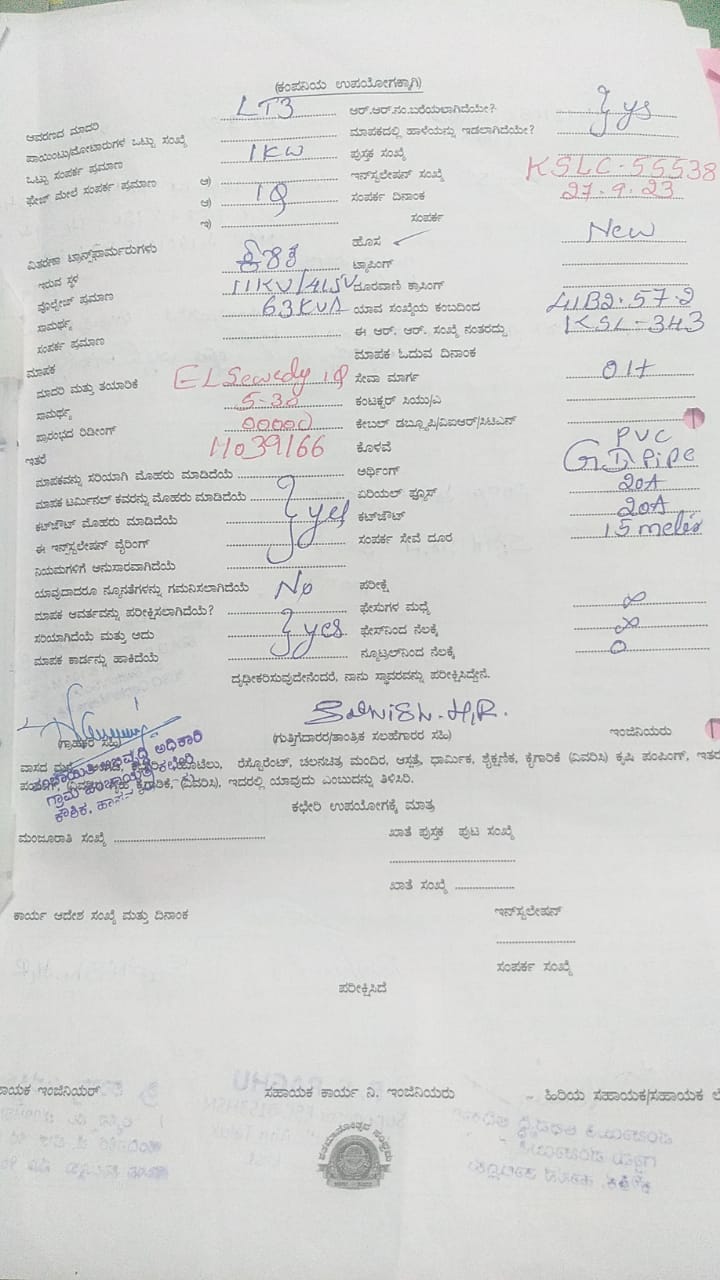 (ಕಂಪನಿಯ ಉಪಯೋಗಕ್ಕಾಗಿ)
ಆವರಣದ ಮಾದರಿ LT3 ಆರ್.ಆರ್.ನಂ.ಬರೆಯಲಾಗಿದೆಯೇ? } yes
ಪಾಯಿಂಟು/ಮೋಟಾರುಗಳ ಒಟ್ಟು ಸಂಖ್ಯೆ ಮಾಪಕದಲ್ಲಿ ಹಾಳೆಯನ್ನು ಇಡಲಾಗಿದೆಯೇ?
ಒಟ್ಟು ಸಂಪರ್ಕ ಪ್ರಮಾಣ 1KW ಪುಸ್ತಕ ಸಂಖ್ಯೆ
ಫೇಜ್ ಮೇಲೆ ಸಂಪರ್ಕ ಪ್ರಮಾಣ ಅ) ಇನ್‌ಸ್ಟಲೇಷನ್ ಸಂಖ್ಯೆ KSLC-55538
ಆ) 1Φ ಸಂಪರ್ಕ ದಿನಾಂಕ 27.9.23
ಇ) ಸಂಪರ್ಕ
ವಿತರಣಾ ಟ್ರಾನ್ಸ್‌ಫಾರ್ಮರುಗಳು ಹೊಸ ✓ New
ಇರುವ ಸ್ಥಳ ಟ್ಯಾಪಿಂಗ್
ವೋಲ್ಟೇಜ್ ಪ್ರಮಾಣ 11KV/415V ದೂರವಾಣಿ ಕ್ರಾಸಿಂಗ್
ಸಾಮರ್ಥ್ಯ 63KVA ಯಾವ ಸಂಖ್ಯೆಯ ಕಂಬದಿಂದ
ಸಂಪರ್ಕ ಪ್ರಮಾಣ ಈ ಆರ್. ಆರ್. ಸಂಖ್ಯೆ ನಂತರದ್ದು KSL-343
ಮಾಪಕ ಮಾಪಕ ಓದುವ ದಿನಾಂಕ
ಮಾದರಿ ಮತ್ತು ತಯಾರಿಕೆ EL Sewedy 1Φ ಸೇವಾ ಮಾರ್ಗ OH
ಸಾಮರ್ಥ್ಯ 5-30 ಕಂಟಕ್ಟರ್ ಸಿಯು/ಎ
ಪ್ರಾರಂಭದ ರಿಡಿಂಗ್ 00000 ಕೇಬಲ್ ಡಬ್ಲ್ಯೂಪಿ/ವಿಐಆರ್/ಸಿಟಿಎನ್
ಇತರೆ 11039166 ಕೊಳವೆ PVC
ಮಾಪಕವನ್ನು ಸರಿಯಾಗಿ ಮೊಹರು ಮಾಡಿದೆಯೆ } yes ಅರ್ಥಿಂಗ್ GI Pipe
ಮಾಪಕ ಟರ್ಮಿನಲ್ ಕವರನ್ನು ಮೊಹರು ಮಾಡಿದೆಯೆ ಏರಿಯಲ್ ಫ್ಯೂಸ್ 20A
ಕಟ್‌ಔಟ್ ಮೊಹರು ಮಾಡಿದೆಯೆ ಕಟ್‌ಔಟ್ 20A
ಈ ಇನ್‌ಸ್ಟಲೇಷನ್ ವೈರಿಂಗ್ ಸಂಪರ್ಕ ಸೇವೆ ದೂರ 15 meter
ನಿಯಮಗಳಿಗೆ ಅನುಸಾರವಾಗಿದೆಯೆ
ಯಾವುದಾದರೂ ನ್ಯೂನತೆಗಳನ್ನು ಗಮನಿಸಲಾಗಿದೆಯೆ No ಪರೀಕ್ಷೆ
ಮಾಪಕ ಆವರ್ತವನ್ನು ಪರೀಕ್ಷಿಸಲಾಗಿದೆಯೆ? } yes ಫೇಸುಗಳ ಮಧ್ಯೆ ∞
ಸರಿಯಾಗಿದೆಯೆ ಮತ್ತು ಅದು ಫೇಸ್‌ನಿಂದ ನೆಲಕ್ಕೆ ∞
ಮಾಪಕ ಕಾರ್ಡನ್ನು ಹಾಕಿದೆಯೆ ನ್ಯೂಟ್ರಲ್‌ನಿಂದ ನೆಲಕ್ಕೆ 0
ದೃಢೀಕರಿಸುವುದೇನೆಂದರೆ, ನಾನು ಸ್ಥಾವರವನ್ನು ಪರೀಕ್ಷಿಸಿದ್ದೇನೆ.
(ಗ್ರಾಹಕರ ಸಹಿ) (ಗುತ್ತಿಗೆದಾರರ/ತಾಂತ್ರಿಕ ಸಲಹೆಗಾರರ ಸಹಿ) ಇಂಜಿನಿಯರು
ಪಂಚಾಯಿತಿ ಅಭಿವೃದ್ಧಿ ಅಧಿಕಾರಿ
ಗ್ರಾಮ ಪಂಚಾಯಿತಿ ಕಛೇರಿ
ಕೌಶಿಕ, ಹಾಸನ
ವಾಸದ ಹೋಟೆಲು, ರೆಸ್ಟೋರೆಂಟ್, ಚಲನಚಿತ್ರ ಮಂದಿರ, ಆಸ್ಪತ್ರೆ, ಧಾರ್ಮಿಕ, ಶೈಕ್ಷಣಿಕ, ಕೈಗಾರಿಕೆ (ವಿವರಿಸಿ) ಕೃಷಿ ಪಂಪಿಂಗ್, ಇತರ
ಕೈಗಾರಿಕೆ, (ವಿವರಿಸಿ), ಇದರಲ್ಲಿ ಯಾವುದು ಎಂಬುದನ್ನು ತಿಳಿಸಿರಿ.
ಕಛೇರಿ ಉಪಯೋಗಕ್ಕೆ ಮಾತ್ರ
ಮಂಜೂರಾತಿ ಸಂಖ್ಯೆ ಖಾತೆ ಪುಸ್ತಕ ಪುಟ ಸಂಖ್ಯೆ
ಖಾತೆ ಸಂಖ್ಯೆ
ಕಾರ್ಯ ಆದೇಶ ಸಂಖ್ಯೆ ಮತ್ತು ದಿನಾಂಕ ಇನ್‌ಸ್ಟಲೇಷನ್
ಸಂಪರ್ಕ ಸಂಖ್ಯೆ
ಪರೀಕ್ಷಿಸಿದೆ
ಾಯಕ ಇಂಜಿನಿಯರ್ ಸಹಾಯಕ ಕಾರ್ಯ ನಿ. ಇಂಜಿನಿಯರು ಹಿರಿಯ ಸಹಾಯಕ/ಸಹಾಯಕ ಲೆ